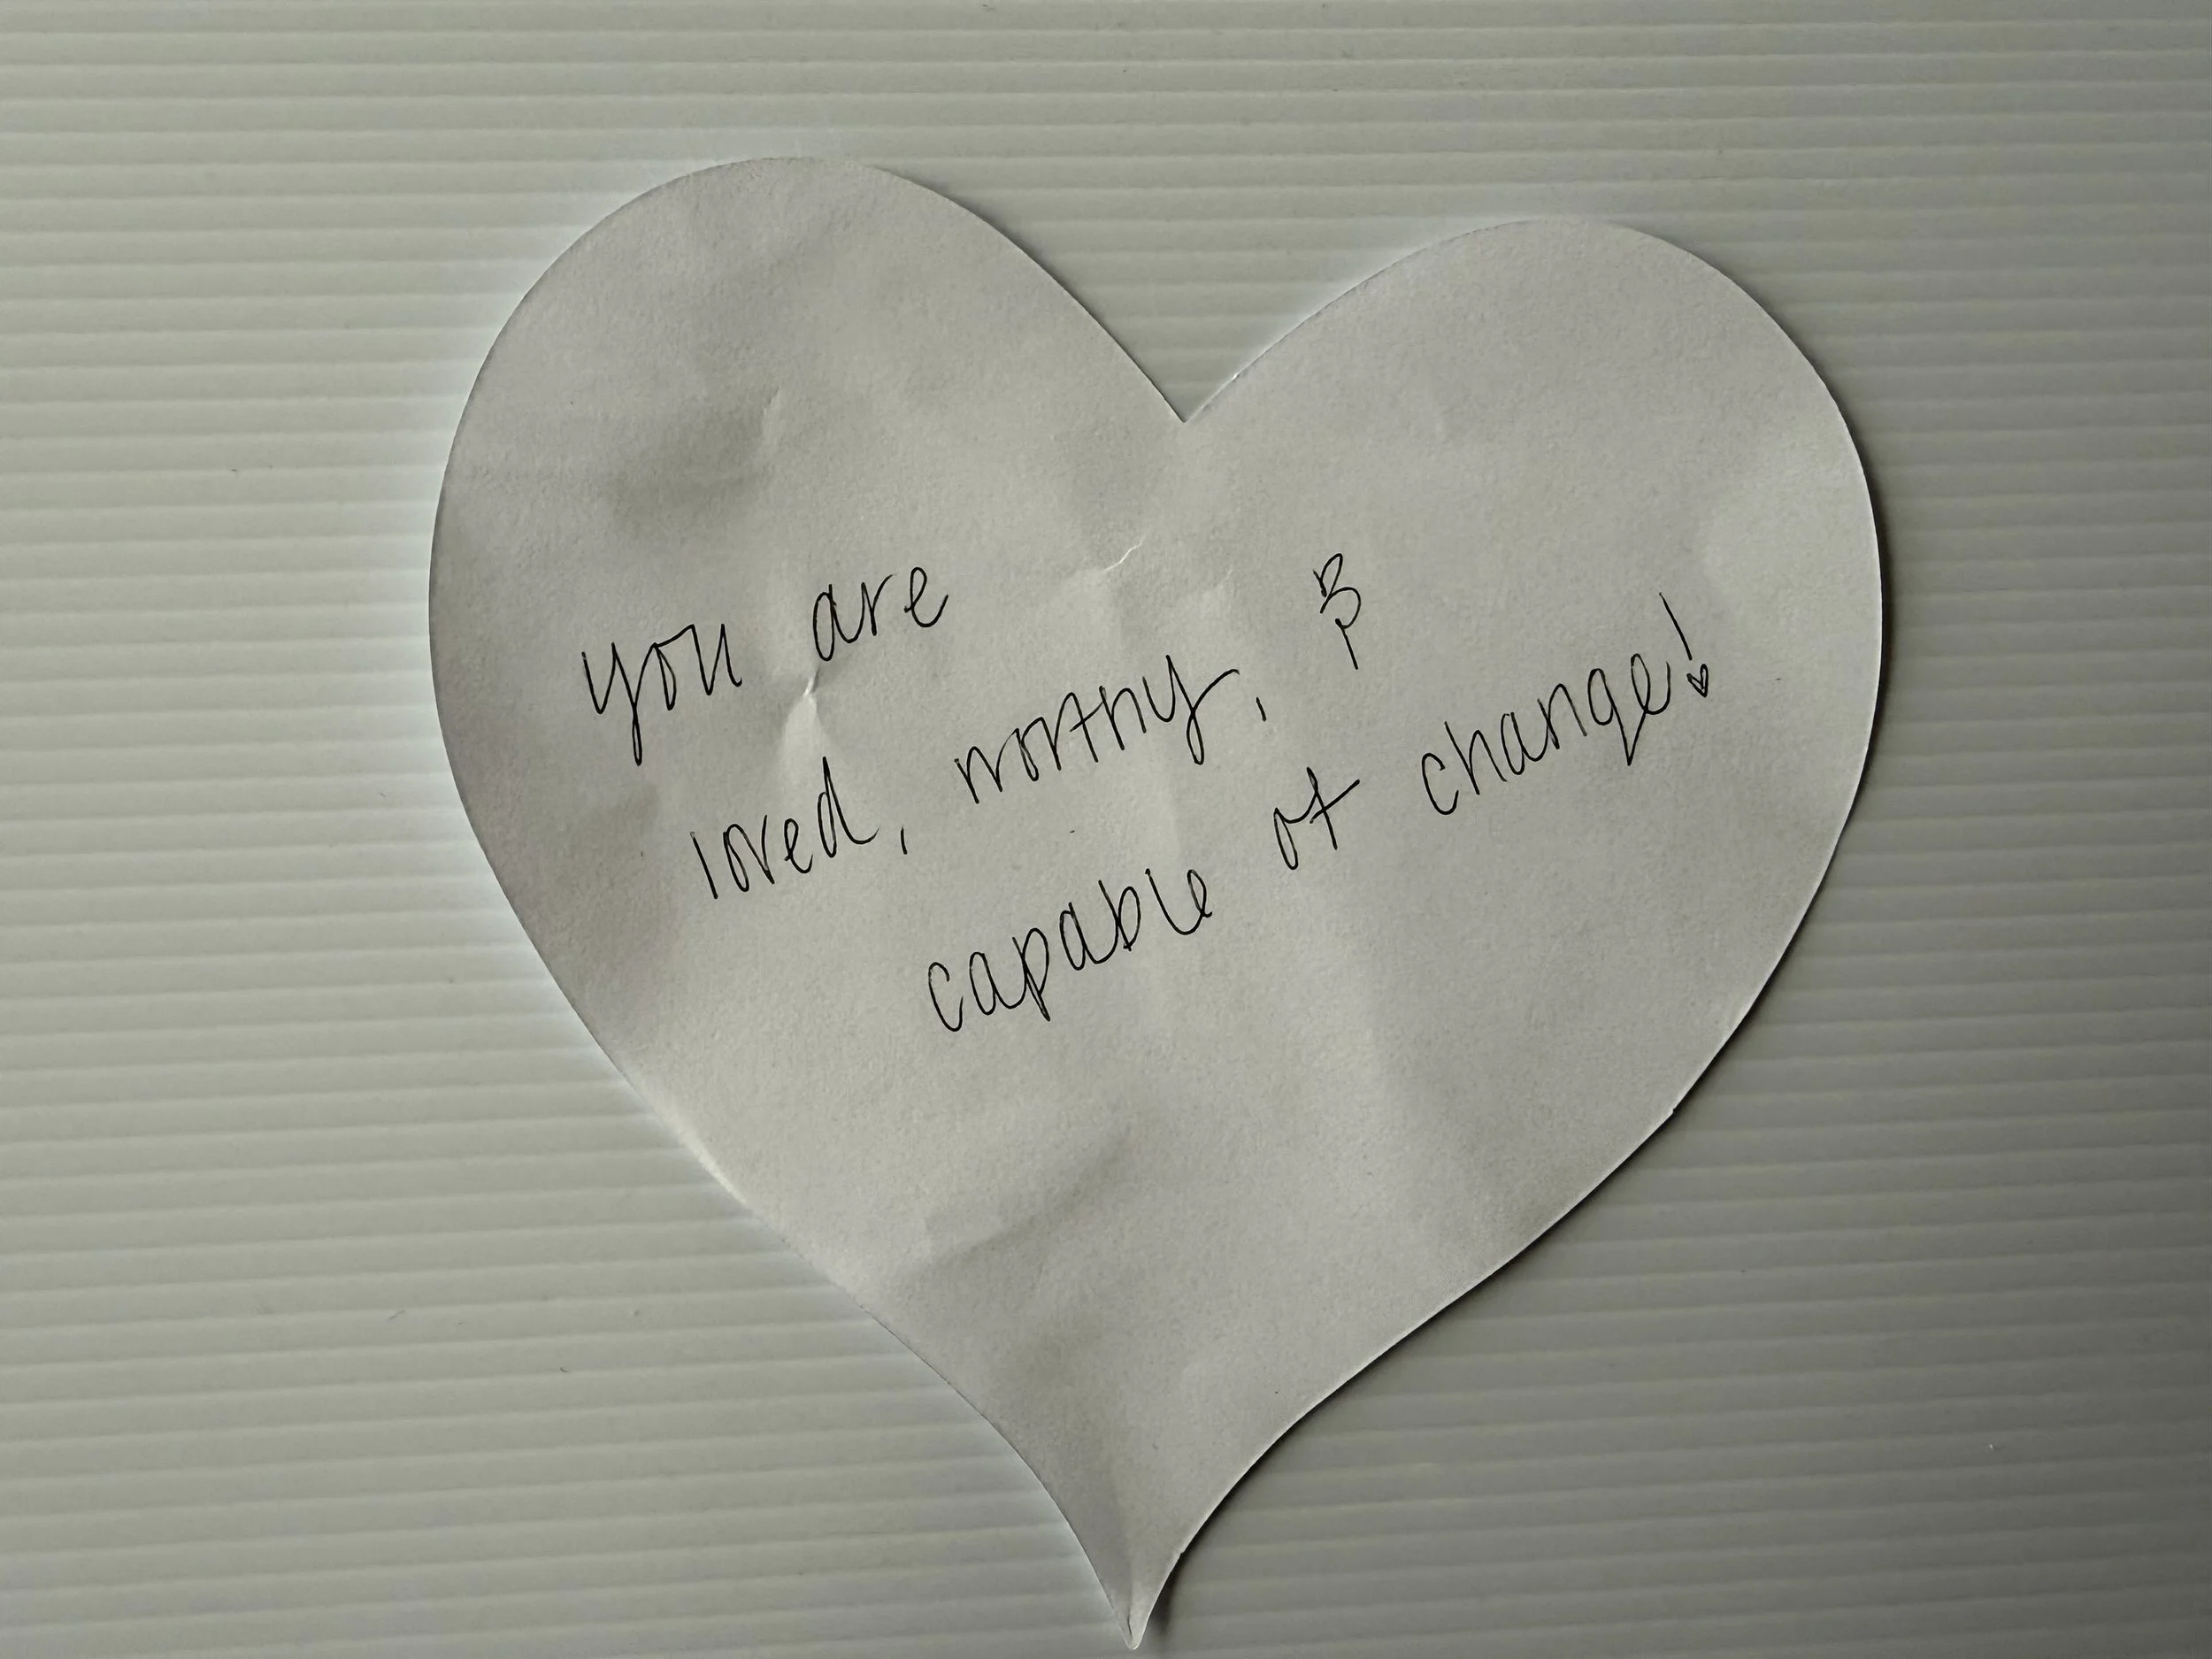 you are
loved, worthy, &
capable of change!